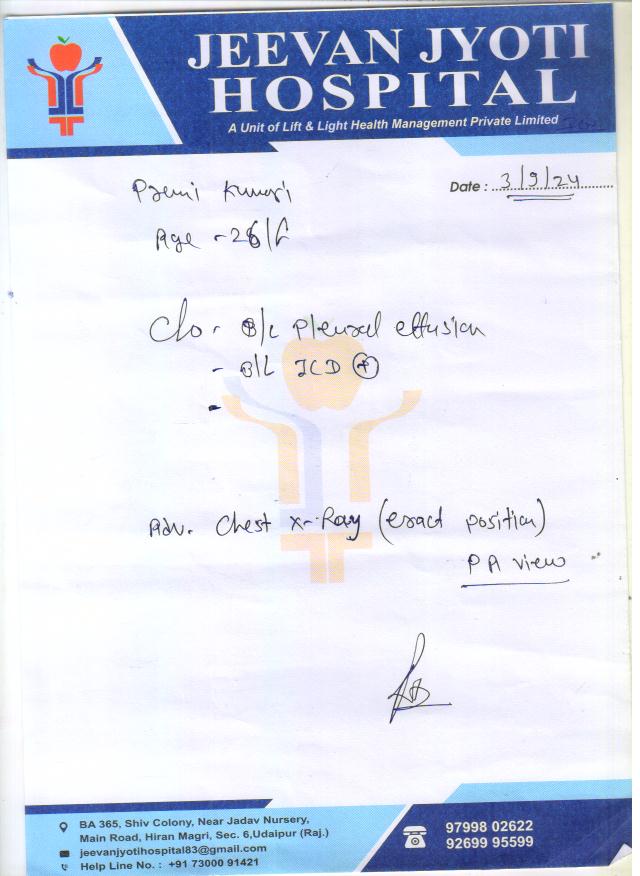 JEEVAN JYOTI
HOSPITAL
A Unit of Lift & Light Health Management Private Limited
Date : 3/9/24
Premi Kumari
Age - 26/F
C/o - B/L Pleural effusion
- B/L ICD +
-
Adv. Chest X-Ray (erect position)
PA view
BA 365, Shiv Colony, Near Jadav Nursery,
Main Road, Hiran Magri, Sec. 6,Udaipur (Raj.)
jeevanjyotihospital83@gmail.com
Help Line No. : +91 73000 91421
97998 02622
92699 95599